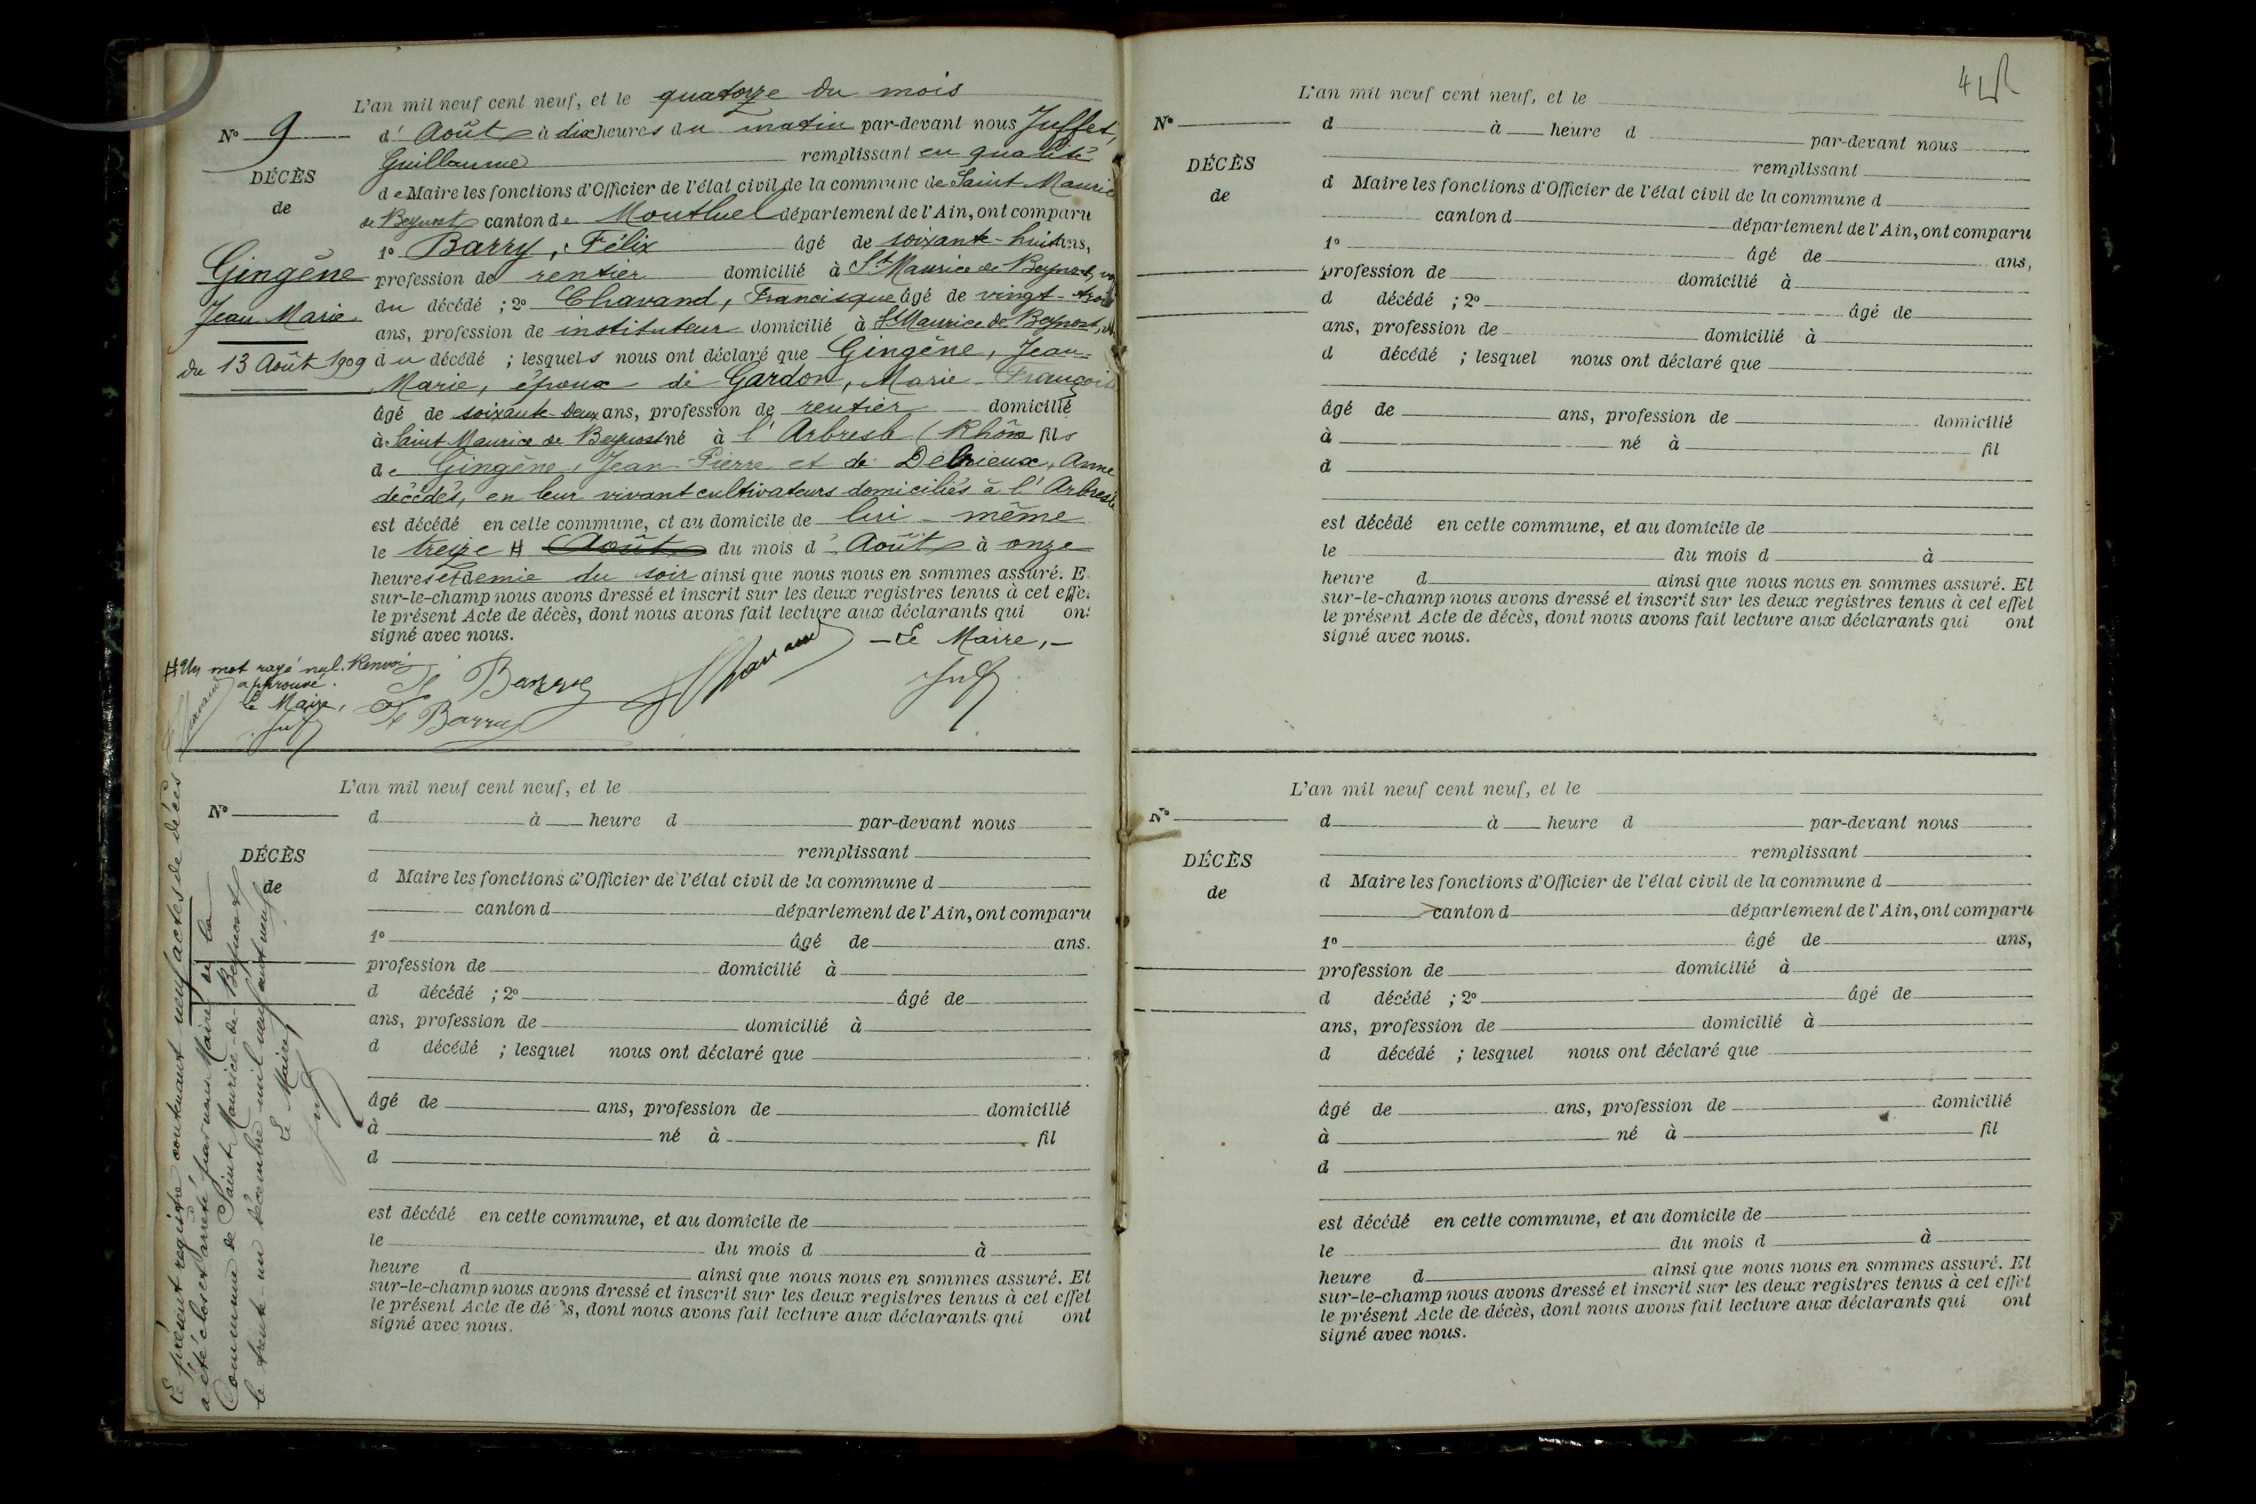 L'an mil neuf cent neuf, et le quatorze du mois
N° 9
d' Août à dix heures du matin par-devant nous Juffet,
Guillaume remplissant en qualité
DÉCÈS
de Maire les fonctions d'Officier de l'état civil de la commune de Saint Maurice
de
de Beynost canton de Montluel département de l'Ain, ont comparu
1° Barry, Félix âgé de soixante-huit ans,
Gingène
profession de rentier domicilié à St Maurice de Beynost,
Jean Marie
du décédé ; 2° Chavand, Francisque âgé de vingt-trois
ans, profession de instituteur domicilié à St Maurice de Beynost,
du 13 Août 1909
du décédé ; lesquels nous ont déclaré que Gingène, Jean-
Marie, époux de Gardon, Marie-Françoise
âgé de soixante-deux ans, profession de rentier domicilié
à Saint Maurice de Beynost né à l'Arbresle (Rhône fils
de Gingène, Jean-Pierre et de Anne
décédés, en leur vivant cultivateurs domiciliés à l'Arbresle
est décédé en cette commune, et au domicile de lui-même
le treize # Août du mois d' Août à onze
heures et demie du soir ainsi que nous nous en sommes assuré. E
sur-le-champ nous avons dressé et inscrit sur les deux registres tenus à cet effe
le présent Acte de décès, dont nous avons fait lecture aux déclarants qui ont
signé avec nous.
- Le Maire, -
# Un mot rayé nul. Renvoi
approuvé.
Le Maire,
Juff
F Barry
F Barry
Chavand
Juff
Chavand
Le présent registre contenant neuf actes de décès
a été clos et arrêté par nous Maire de la
Commune de Saint Maurice-de-Beynost
le trente-un décembre mil neuf cent neuf
Le Maire,
Juff
L'an mil neuf cent neuf, et le
N°
d à heure d par-devant nous
remplissant
DÉCÈS
de
d Maire les fonctions d'Officier de l'état civil de la commune d
canton d département de l'Ain, ont comparu
1° âgé de ans.
profession de domicilié à
d décédé ; 2° âgé de
ans, profession de domicilié à
d décédé ; lesquel nous ont déclaré que
âgé de ans, profession de domicilié
à né à fil
d
est décédé en cette commune, et au domicile de
le du mois d à
heure d ainsi que nous nous en sommes assuré. Et
sur-le-champ nous avons dressé et inscrit sur les deux registres tenus à cet effet
le présent Acte de décès, dont nous avons fait lecture aux déclarants qui ont
signé avec nous.
4
L'an mil neuf cent neuf, et le
N°
d à heure d par-devant nous
remplissant
DÉCÈS
de
d Maire les fonctions d'Officier de l'état civil de la commune d
canton d département de l'Ain, ont comparu
1° âgé de ans,
profession de domicilié à
d décédé ; 2° âgé de
ans, profession de domicilié à
d décédé ; lesquel nous ont déclaré que
âgé de ans, profession de domicilié
à né à fil
d
est décédé en cette commune, et au domicile de
le du mois d à
heure d ainsi que nous nous en sommes assuré. Et
sur-le-champ nous avons dressé et inscrit sur les deux registres tenus à cet effet
le présent Acte de décès, dont nous avons fait lecture aux déclarants qui ont
signé avec nous.
L'an mil neuf cent neuf, et le
N°
d à heure d par-devant nous
remplissant
DÉCÈS
de
d Maire les fonctions d'Officier de l'état civil de la commune d
canton d département de l'Ain, ont comparu
1° âgé de ans,
profession de domicilié à
d décédé ; 2° âgé de
ans, profession de domicilié à
d décédé ; lesquel nous ont déclaré que
âgé de ans, profession de domicilié
à né à fil
d
est décédé en cette commune, et au domicile de
le du mois d à
heure d ainsi que nous nous en sommes assuré. Et
sur-le-champ nous avons dressé et inscrit sur les deux registres tenus à cet effet
le présent Acte de décès, dont nous avons fait lecture aux déclarants qui ont
signé avec nous.